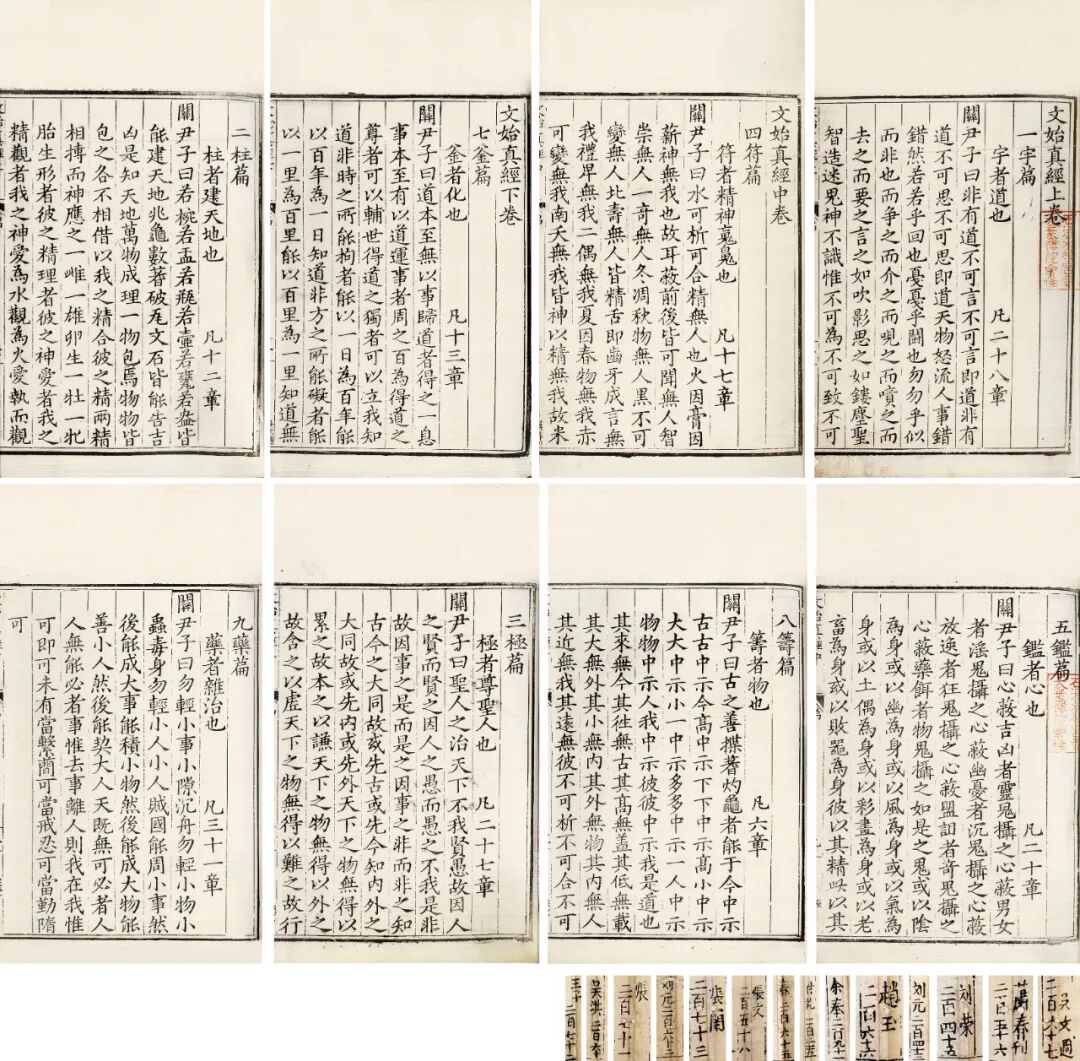 文始真經上卷
一宇篇
宇者道也 凡二十八章
關尹子曰非有道不可言不可言即道非有
道不可思不可思即道天物怒流人事錯
錯然若若乎回也戞戞乎鬪也勿勿乎似
而非也而爭之而介之而哯之而嘖之而
去之而要之言之如吹影思之如鏤塵聖
智造迷鬼神不識惟不可為不可致不可
文始真經中卷
四符篇
符者精神䰟魄也 凡十七章
關尹子曰水可析可合精無人也火因膏因
薪神無我也故耳蔽前後皆可聞無人智
崇無人一奇無人冬凋秋物無人黑不可
變無人北壽無人皆精舌即齒牙成言無
我禮卑無我二偶無我夏因春物無我赤
可變無我南夭無我皆神以精無我故米
文始真經下卷
七釜篇
釜者化也 凡十三章
關尹子曰道本至無以事歸道者得之一息
事本至有以道運事者周之百為得道之
尊者可以輔世得道之獨者可以立我知
道非時之所能拘者能以一日為百年能
以百年為一日知道非方之所能礙者能
以一里為百里能以百里為一里知道無
二柱篇
柱者建天地也 凡十二章
關尹子曰若椀若盂若瓶若壷若甕若盎皆
能建天地兆龜數蓍破瓦文石皆能告吉
凶是知天地萬物成理一物包焉物物皆
包之各不相借以我之精合彼之精兩精
相搏而神應之一雌一雄卵生一牡一牝
胎生形者彼之精理者彼之神愛者我之
精觀者我之神愛為水觀為火愛執而觀
五鑑篇
鑑者心也 凡二十章
關尹子曰心蔽吉凶者靈鬼攝之心蔽男女
者淫鬼攝之心蔽幽憂者沉鬼攝之心蔽
放逸者狂鬼攝之心蔽盟詛者竒鬼攝之
心蔽藥餌者物鬼攝之如是之鬼或以陰
為身或以幽為身或以風為身或以氣為
身或以土偶為身或以彩畫為身或以老
畜為身或以敗器為身彼以其精此以其
八籌篇
籌者物也 凡六章
關尹子曰古之善揲蓍灼龜者能于今中示
古古中示今高中示下下中示高小中示
大大中示小一中示多多中示一人中示
物物中示人我中示彼彼中示我是道也
其來無今其徃無古其髙無蓋其低無載
其大無外其小無内其外無物其内無人
其近無我其遠無彼不可析不可合不可
三極篇
極者尊聖人也 凡二十七章
關尹子曰聖人之治天下不我賢愚故因人
之賢而賢之因人之愚而愚之不我是非
故因事之是而是之因事之非而非之知
古今之大同故或先古或先今知内外之
大同故或先内或先外天下之物無得以
累之故本之以謙天下之物無得以外之
故含之以虛天下之物無得以難之故行
九藥篇
藥者雜治也 凡三十一章
關尹子曰勿輕小事小隙沉舟勿輕小物小
蟲毒身勿輕小人小人賊國能周小事然
後能成大事能積小物然後能成大物能
善小人然後能契大人天既無可必者人
人無能必者事惟去事離人則我在我惟
可即可未有當繁蕳可當戒忍可當勤隋
可
刘榮
二百四十五
刘元二百四十
趙玉
張文
二百五十八
張閏
二百七十三